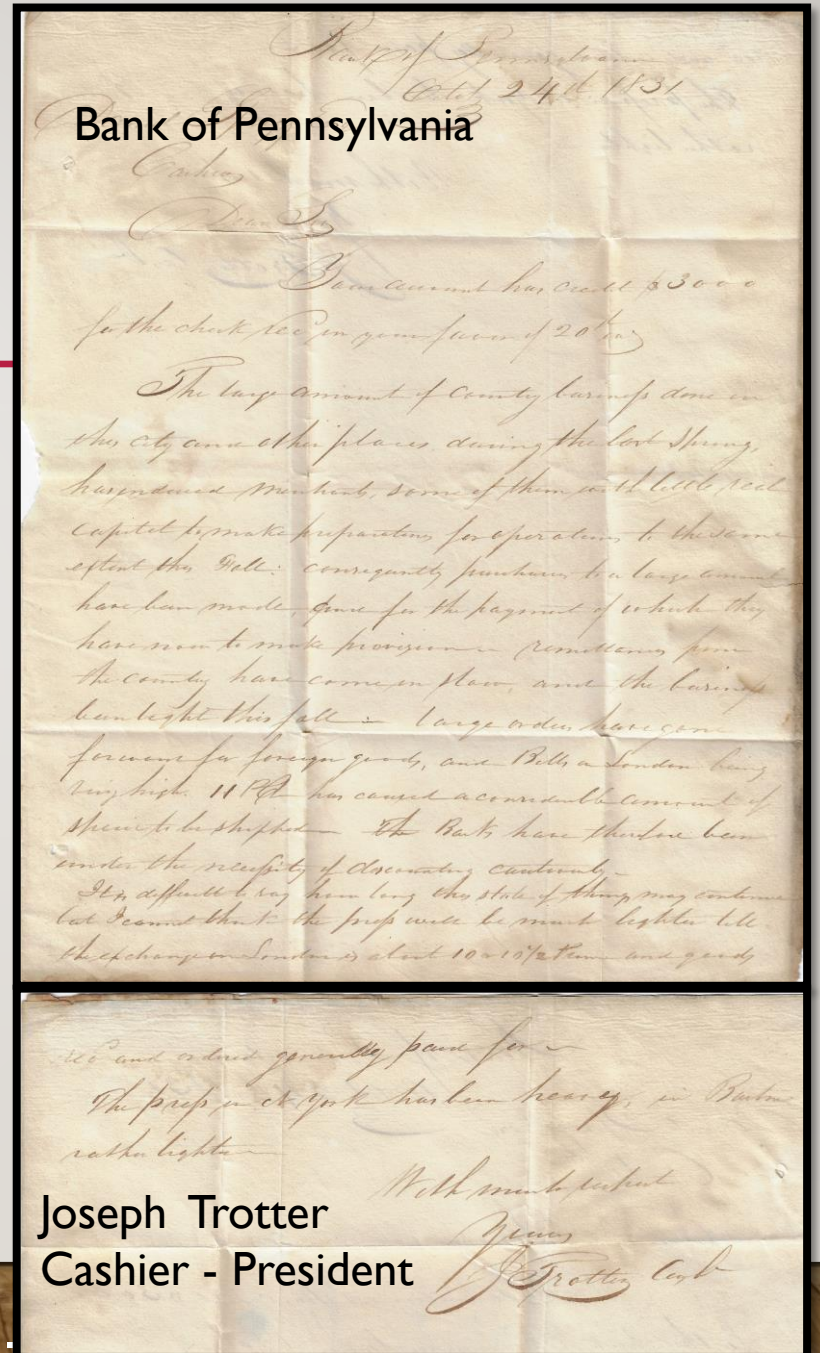 Bank of Pennsylvania
Octb 24th 1831
Bank of Pennsylvania
Cashier
Dear Sir
Your account has credit $3000
for the check rec'd in your favor of 20th
The large amount of Country business done in
this city and other places, during the last Spring,
has induced merchants, some of them with little real
capital to make preparations for operations to the same
extent this Fall: consequently purchases to a large amount
have been made, for the payment of which they
have now to make provision – remittances from
the country have come in slow, and the business
been light this fall – large orders have gone
forward for foreign goods, and Bills on London being
very high. 11 has caused a considerable amount of
specie to be shipped – The Banks have therefore been
under the necessity of discounting cautiously –
It is difficult to say how long this state of things may continue
but I cannot think the press will be much lighter till
the exchange on London is about 10 a 10 1/2 and goods
rec'd and ordered generally paid for –
The press in N York has been heavy, in Boston
rather lighter –
With much respect
Yours
J Trotter Cash
Joseph Trotter
Cashier - President